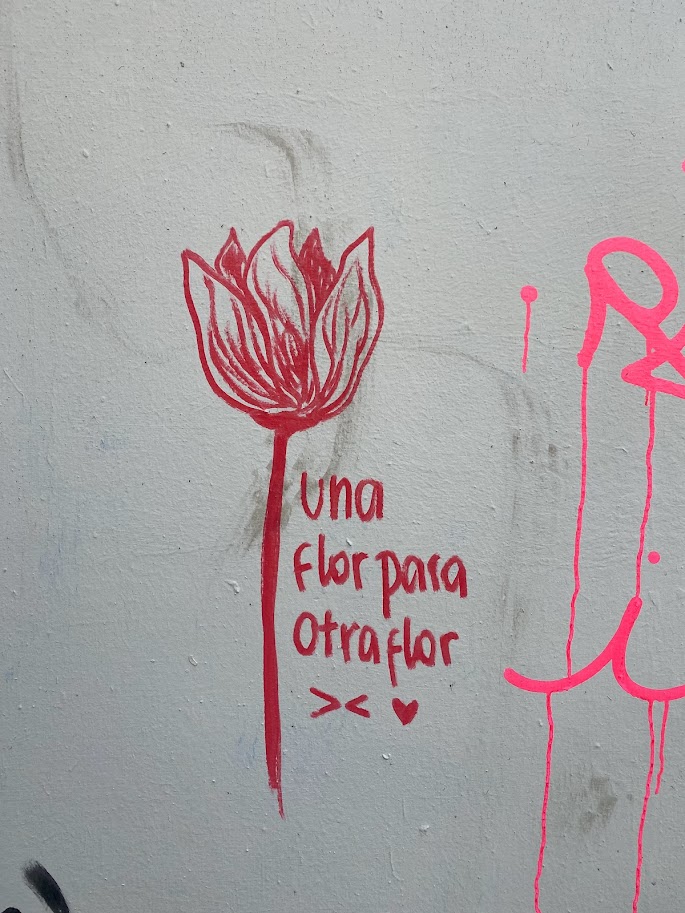 una
Flor para
Otra flor
>< ♥